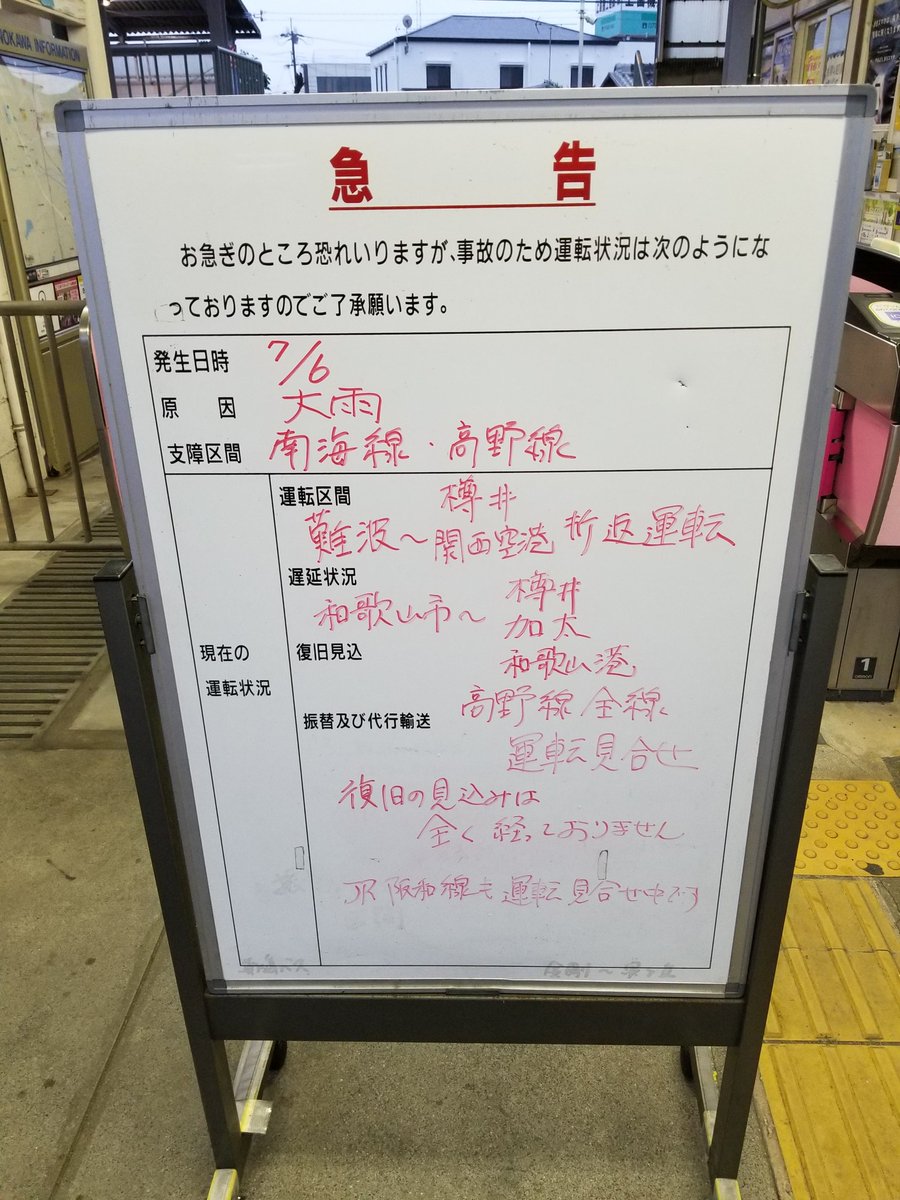 NOKAWA INFORMATION
急 告
お急ぎのところ恐れいりますが、事故のため運転状況は次のようにな
っておりますのでご了承願います。
発生日時 7/6
原 因 大雨
支障区間 南海線・高野線
運転区間 樽井
難波〜関西空港 折返運転
遅延状況
和歌山市〜 樽井
加太
現在の
運転状況
復旧見込
和歌山港
振替及び代行輸送
高野線全線
運転見合せ
復旧の見込みは
全く経っておりません
JR阪和線も運転見合せ中です
1